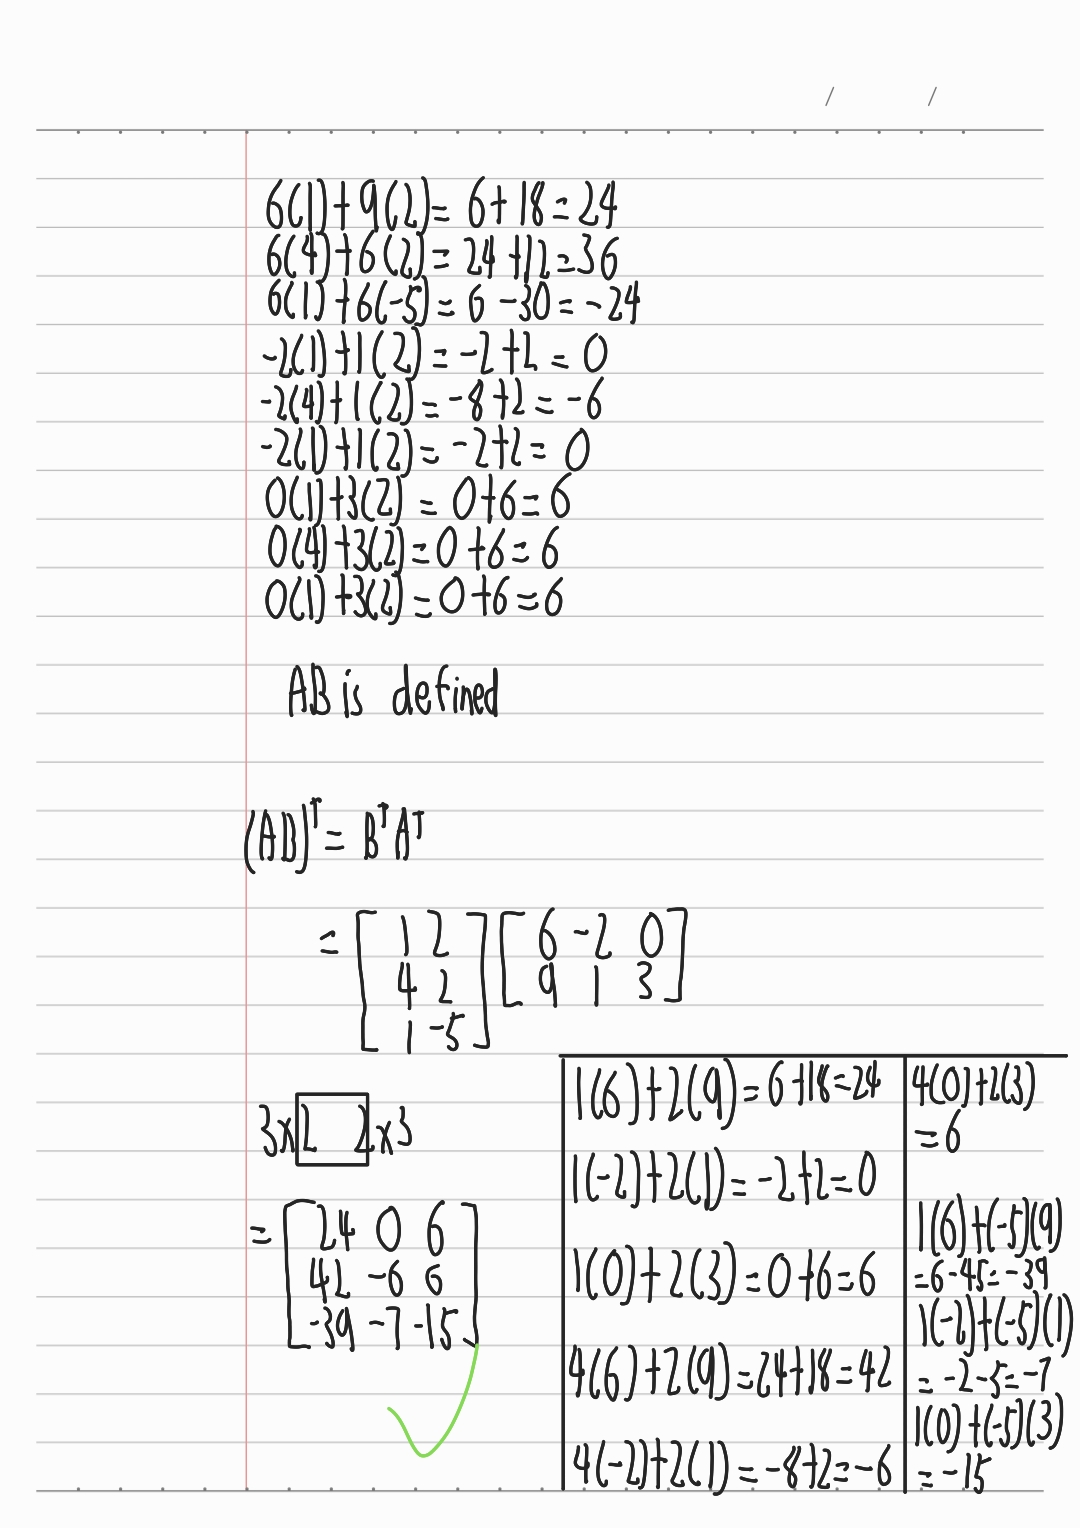 / /
6(1)+9(2)= 6+18=24
6(4)+6(2)= 24+12=36
6(1)+6(-5)= 6-30=-24
-2(1)+1(2)=-2+2=0
-2(4)+1(2)=-8+2=-6
-2(1)+1(2)=-2+2=0
0(1)+3(2)=0+6=6
0(4)+3(2)=0+6=6
0(1)+3(2)=0+6=6
AB is defined
(AB)ᵀ= BᵀAᵀ
= [ 1 2 ] [ 6 -2 0 ]
4 2 9 1 3
1 -5
3x2 2x3
= [ 24 0 6 ]
42 -6 6
-39 -7 -15
1(6)+2(9)=6+18=24
1(-2)+2(1)=-2+2=0
1(0)+2(3)=0+6=6
4(6)+2(9)=24+18=42
4(-2)+2(1)=-8+2=-6
4(0)+2(3)
=6
1(6)+(-5)(9)
=6-45=-39
1(-2)+(-5)(1)
=-2-5=-7
1(0)+(-5)(3)
=-15